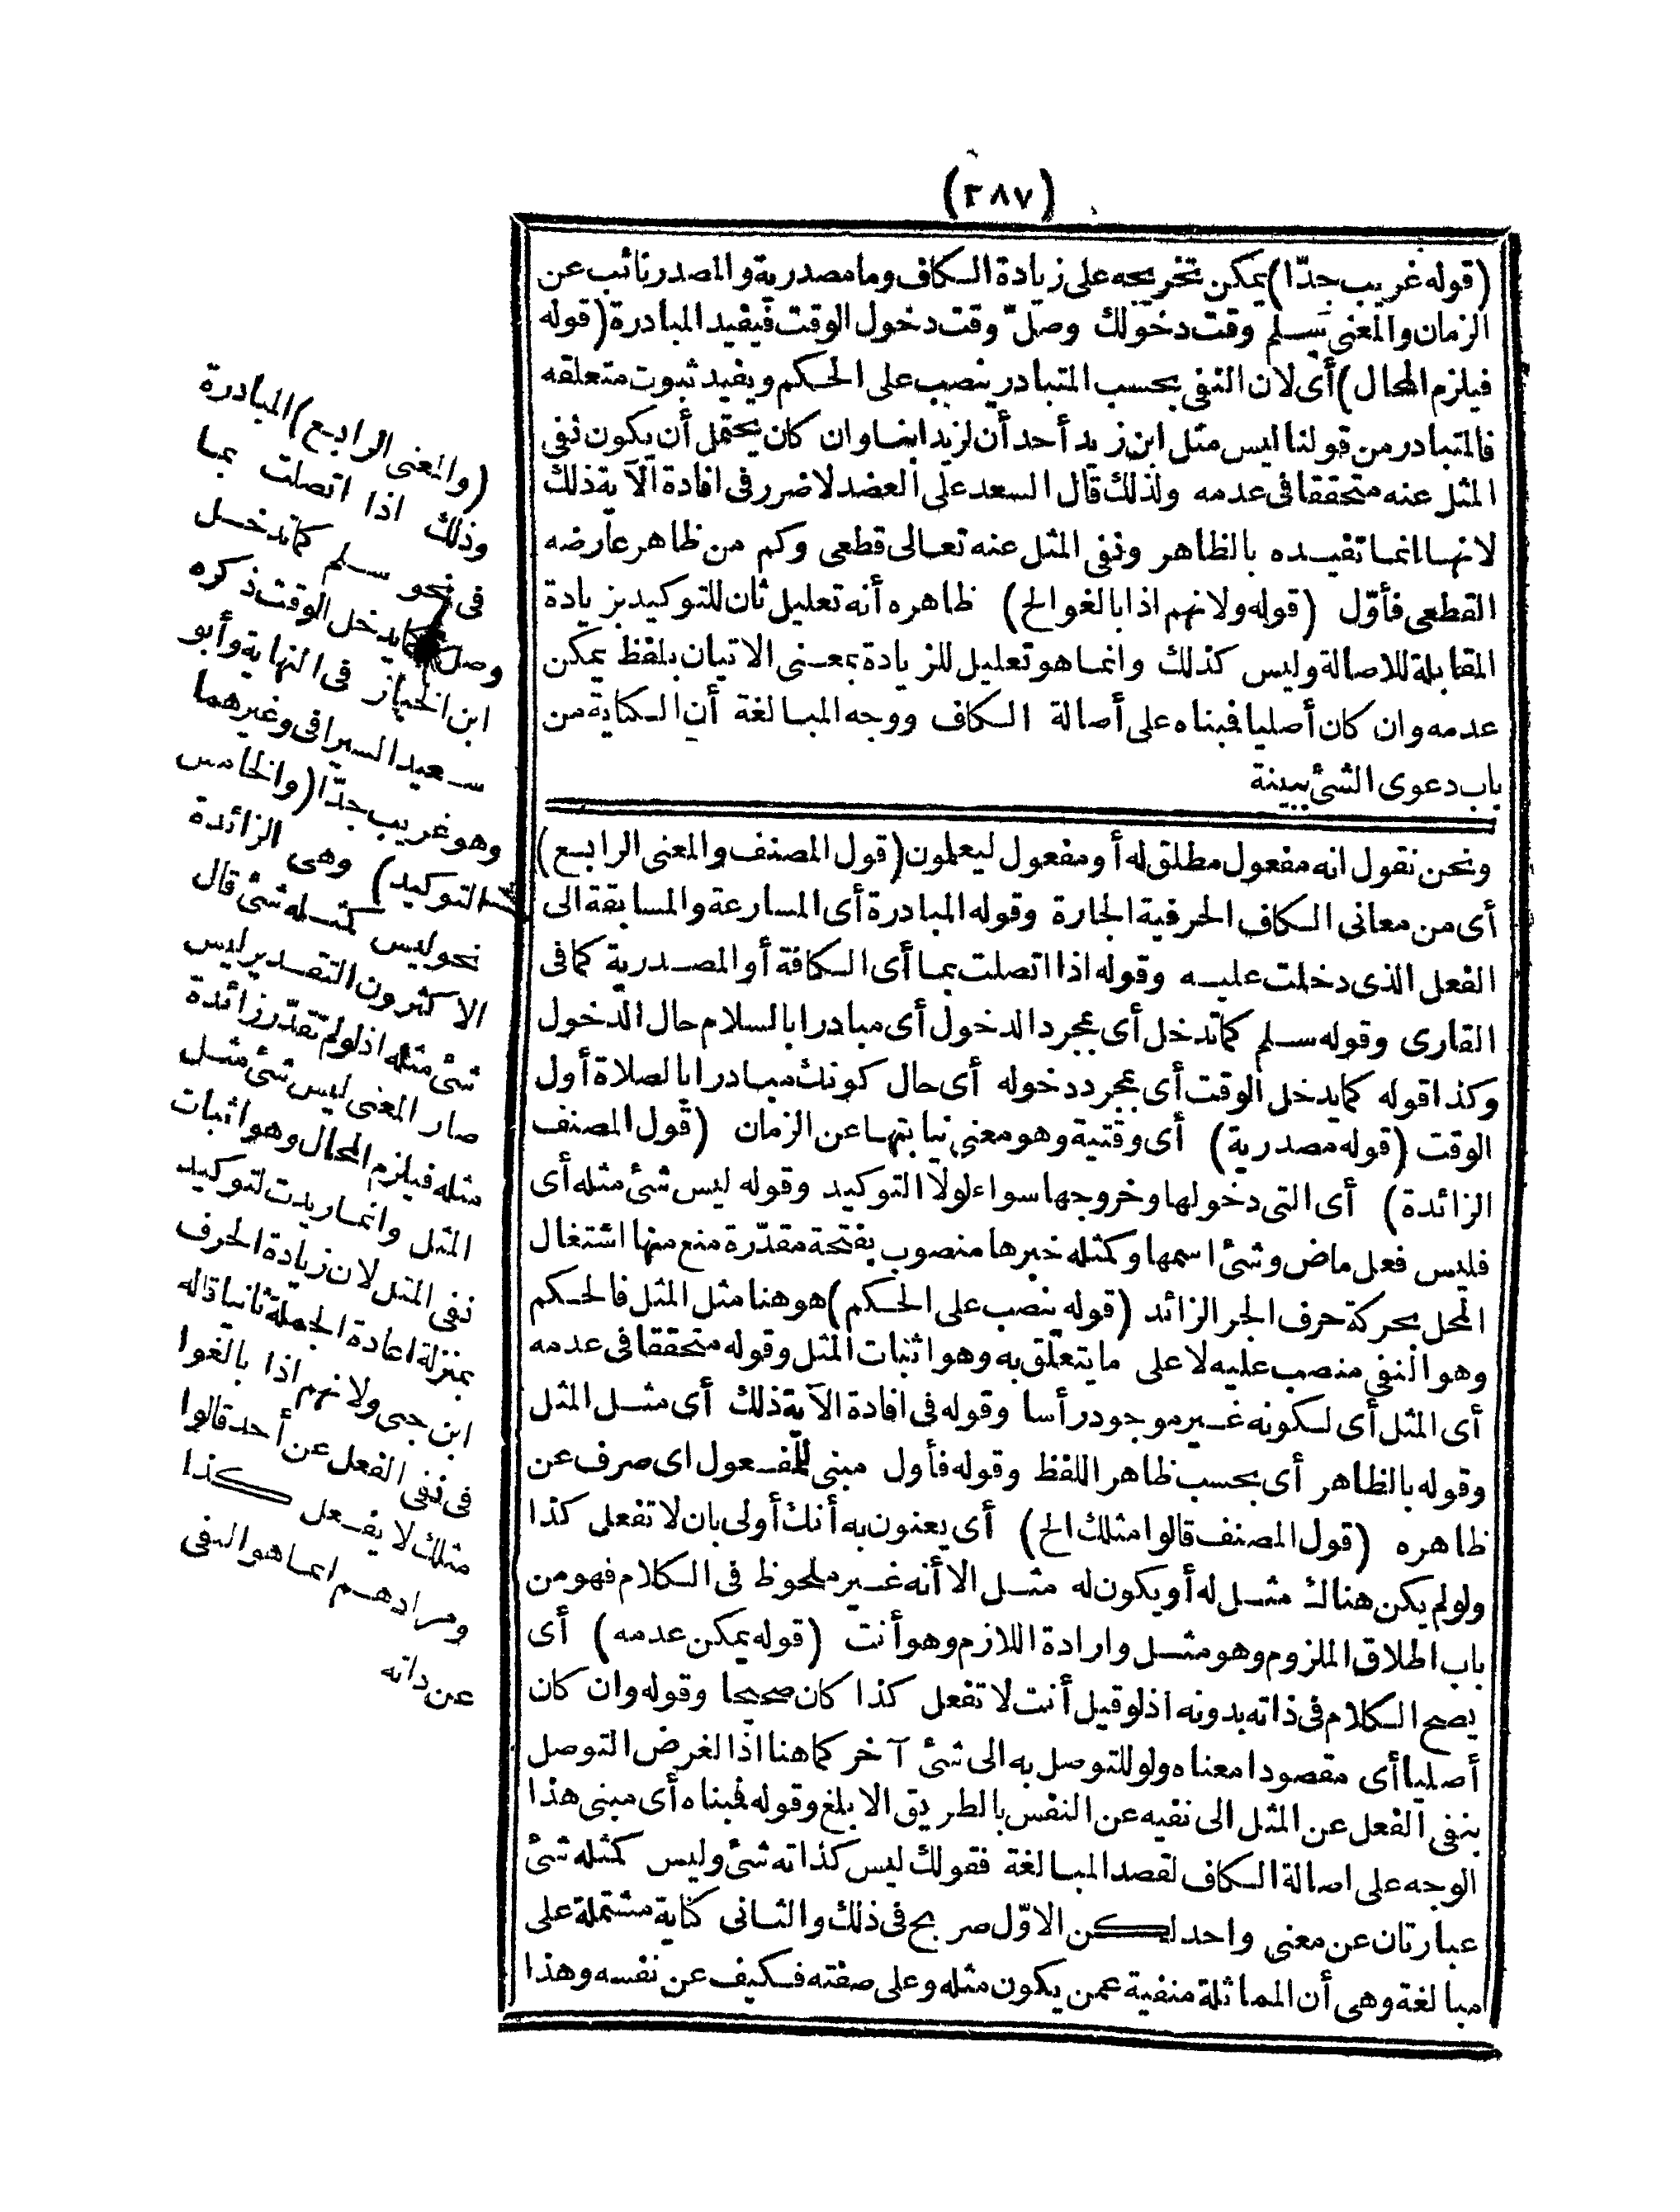 (٣٨٧)
(قوله غريب جدّا) يمكن تخريجه على زيادة الكاف وما مصدرية والمصدر نائب عن
الزمان والمعنى سلم وقت دخولك وصل وقت دخول الوقت فيفيد المبادرة (قوله
فيلزم المحال) أى لان النفى بحسب المتبادر ينصب على الحكم ويفيد ثبوت متعلقه
فالمتبادر من قولنا ليس مثل ابن زيد أحد أن لزيد ابنا وان كان يحتمل أن يكون نفى
المثل عنه متحققا فى عدمه ولذلك قال السعد على العضد لا ضرر فى افادة الآية ذلك
لانها انما تفيده بالظاهر ونفى المثل عنه تعالى قطعى وكم من ظاهر عارضه
القطعى فأوّل (قوله ولانهم اذا بالغوا الخ) ظاهره أنه تعليل ثان للتوكيد بزيادة
المقابلة للاصالة وليس كذلك وانما هو تعليل للزيادة بمعنى الاتيان بلفظ يمكن
عدمه وان كان أصليا فبناه على أصالة الكاف ووجه المبالغة أن الكناية من
باب دعوى الشئ ببينة
ونحن نقول انه مفعول مطلق له أو مفعول ليعلمون (قول المصنف والمعنى الرابع)
أى من معانى الكاف الحرفية الجارة وقوله المبادرة أى المسارعة والمسابقة الى
الفعل الذى دخلت عليه وقوله اذا اتصلت بما أى الكافة أو المصدرية كما فى
القارى وقوله سلم كما تدخل أى بمجرد الدخول أى مبادرا بالسلام حال الدخول
وكذا قوله كما يدخل الوقت أى بمجرد دخوله أى حال كونك مبادرا بالصلاة أول
الوقت (قوله مصدرية) أى وقتية وهو معنى نيابتها عن الزمان (قول المصنف
الزائدة) أى التى دخولها وخروجها سواء لولا التوكيد وقوله ليس شئ مثله أى
فليس فعل ماض وشئ اسمها وكمثله خبرها منصوب بفتحة مقدّرة منع منها اشتغال
المحل بحركة حرف الجر الزائد (قوله ينصب على الحكم) هو هنا مثل المثل فالحكم
وهو النفى منصب عليه لا على ما يتعلق به وهو اثبات المثل وقوله متحققا فى عدمه
أى المثل أى لكونه غير موجود رأسا وقوله فى افادة الآية ذلك أى مثل المثل
وقوله بالظاهر أى بحسب ظاهر اللفظ وقوله فأول مبنى للمفعول اى صرف عن
ظاهره (قول المصنف قالوا مثلك الخ) أى يعنون به أنك أولى بان لا تفعل كذا
ولو لم يكن هناك مثل له أو يكون له مثل الا أنه غير ملحوظ فى الكلام فهو من
باب اطلاق الملزوم وهو مثل وارادة اللازم وهو أنت (قوله يمكن عدمه) أى
يصح الكلام فى ذاته بدونه اذ لو قيل أنت لا تفعل كذا كان صحيحا وقوله وان كان
أصليا أى مقصودا معناه ولو للتوصل به الى شئ آخر كما هنا اذ الغرض التوصل
بنفى الفعل عن المثل الى نفيه عن النفس بالطريق الابلغ وقوله فبناه أى مبنى هذا
الوجه على اصالة الكاف لقصد المبالغة فقولك ليس كذاته شئ وليس كمثله شئ
عبارتان عن معنى واحد لكن الاوّل صريح فى ذلك والثانى كناية مشتملة على
مبالغة وهى أن المماثلة منفية عمن يكون مثله وعلى صفته فكيف عن نفسه وهذا
(والمعنى الرابع) المبادرة
وذلك اذا اتصلت بما
فى نحو سلم كما تدخل
وصل كما يدخل الوقت ذكره
ابن الخباز فى النهاية وأبو
سعيد السيرافى وغيرهما
وهو غريب جدّا (والخامس
التوكيد) وهى الزائدة
نحو ليس كمثله شئ قال
الاكثرون التقدير ليس
شئ مثله اذ لو لم تقدّر زائدة
صار المعنى ليس شئ مثل
مثله فيلزم المحال وهو اثبات
المثل وانما زيدت لتوكيد
نفى المثل لان زيادة الحرف
بمنزلة اعادة الجملة ثانيا قاله
ابن جنى ولانهم اذا بالغوا
فى نفى الفعل عن أحد قالوا
مثلك لا يفعل كذا
ومرادهم انما هو النفى
عن ذاته